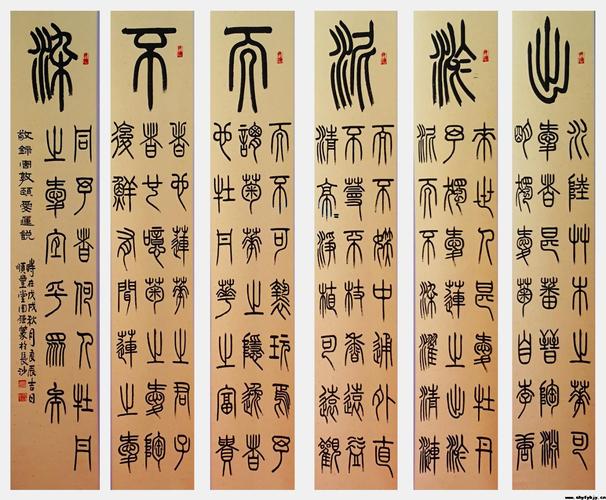 出淤泥而不染
水陸艸木之華可
愛者甚蕃晉陶淵
明獨愛菊自李唐
來世人甚愛牡丹
予獨愛蓮之出淤
泥而不染濯清漣
而不妖中通外直
不蔓不枝香遠益
清亭=淨植可遠觀
而不可褻玩焉予
謂菊華之隱逸者
也牡丹華之富貴
者也蓮華之君子
者也噫菊之愛陶
後鮮有聞蓮之愛
同予者何人牡丹
之愛宜乎眾矣
敬錄周敦頤愛蓮說
時在戊戌秋月良辰吉日
堂周於長沙